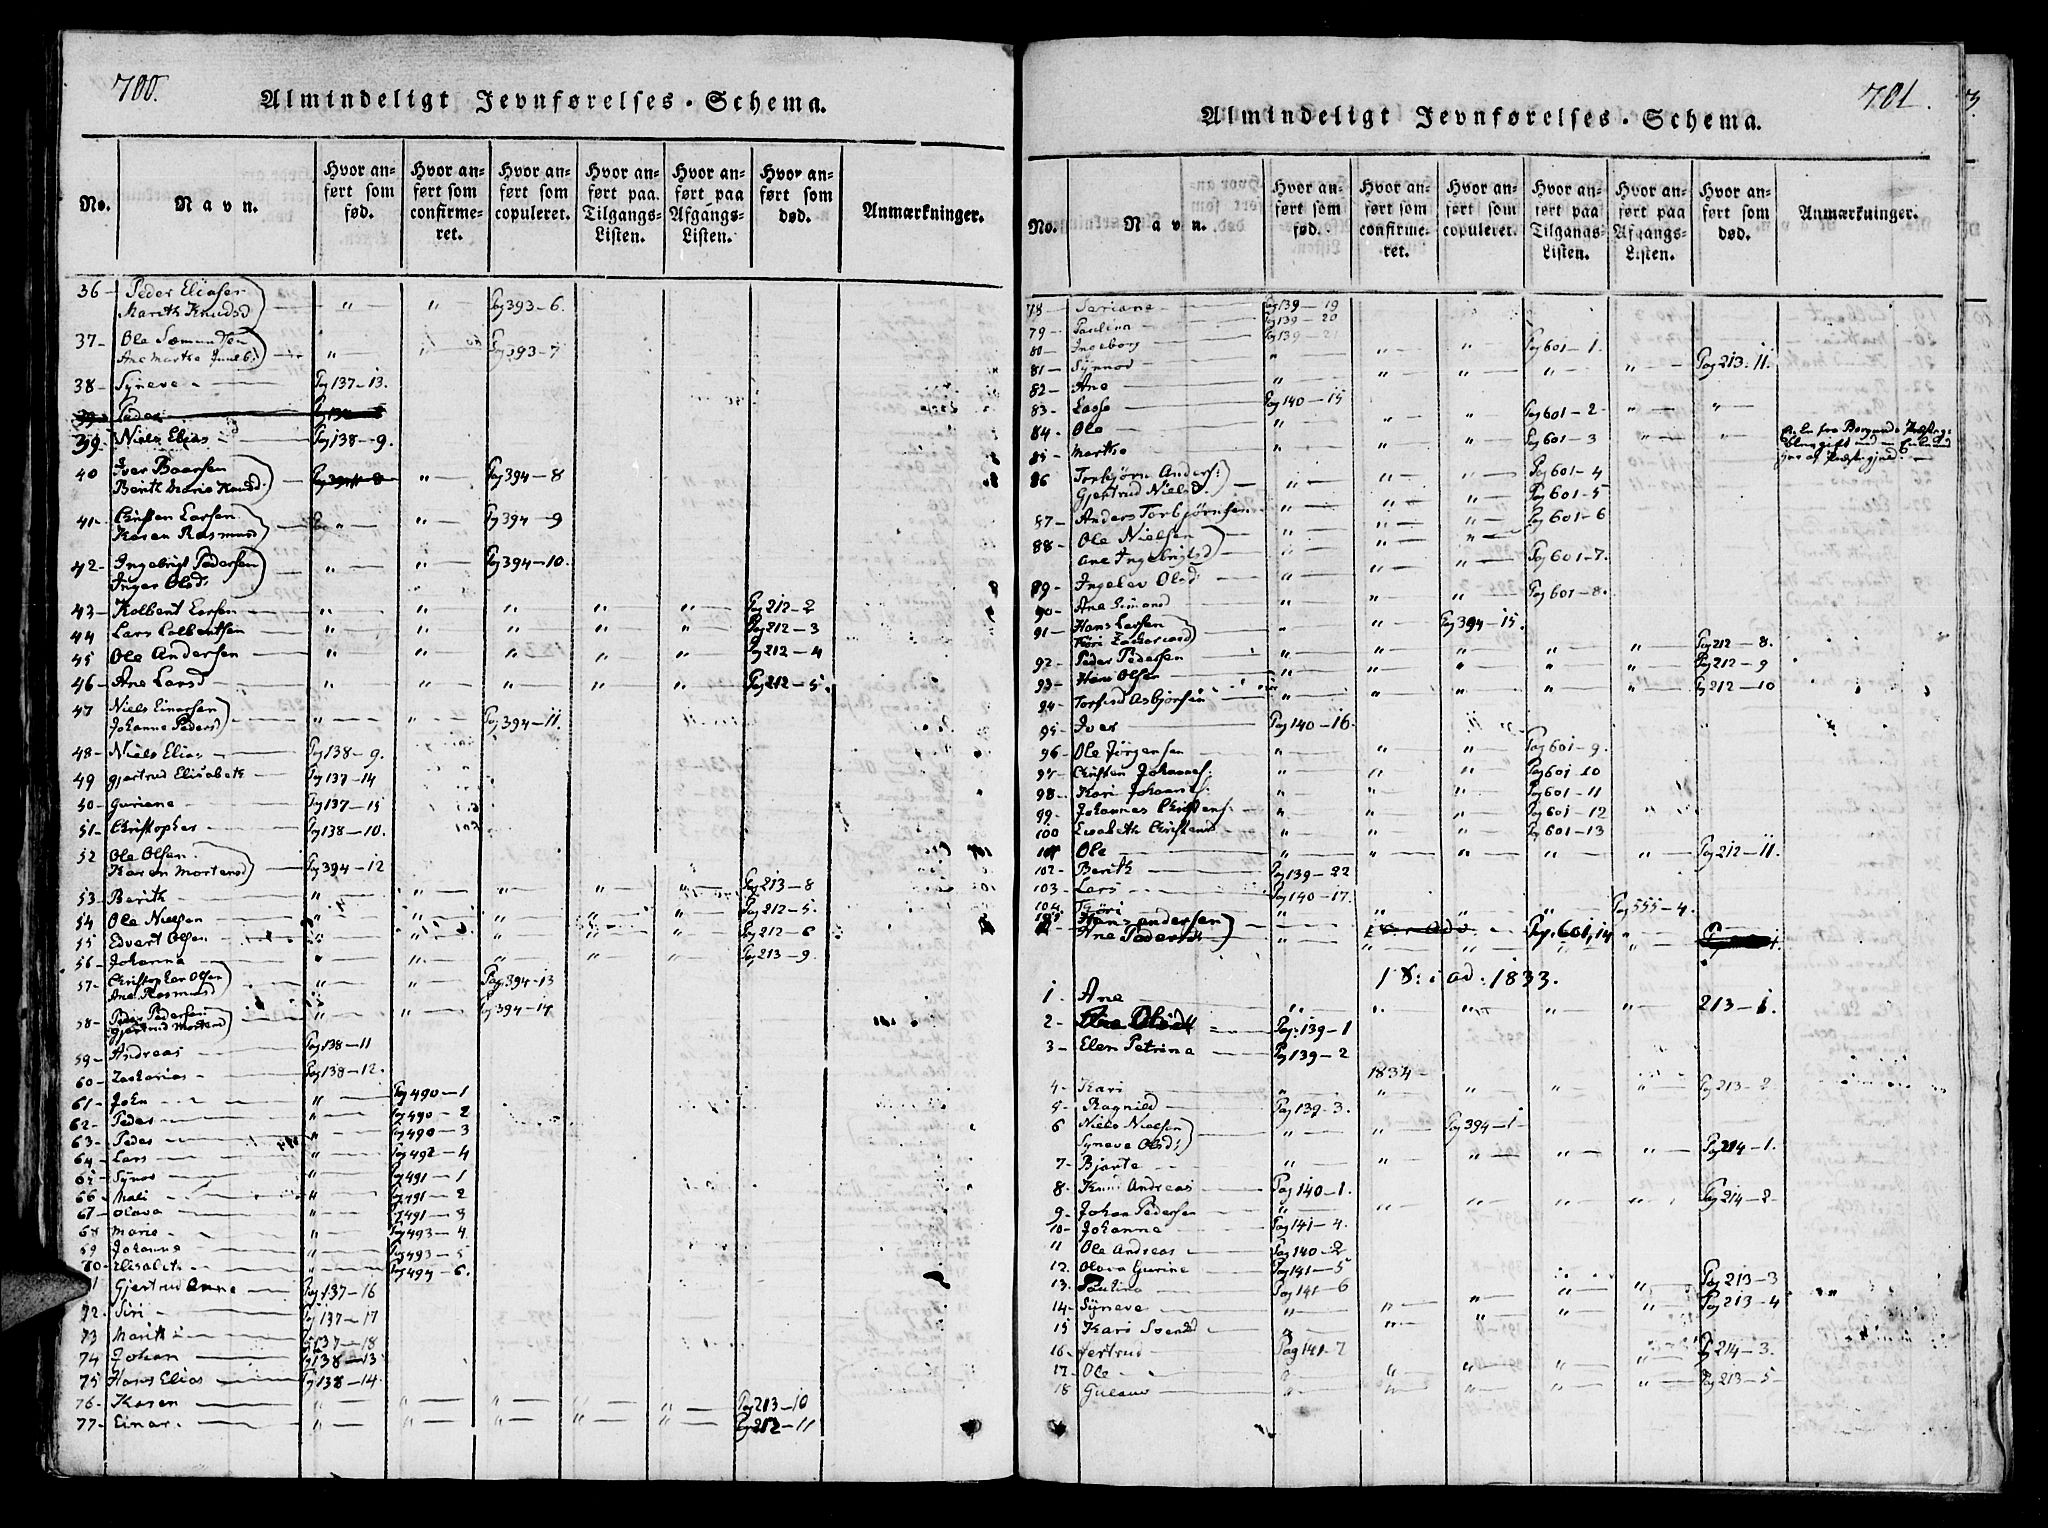 700.
Almindeligt Jevnførelses-Schema.
No.
Navn.
Hvor anført som fød.
Hvor anført som confirmeret.
Hvor anført som copuleret.
Hvor anført paa Tilgangs-Listen.
Hvor anført paa Afgangs-Listen.
Hvor anført som død.
Anmærkninger.
36 - Peder Eliasen
Marith Knudsd - " - " - Pag 393-6.
37 - Ole Sæmundsen
Ane Martha - " - " - Pag 393-7
38 - Syneve - Pag 137-13.
39 - Peder
39 - Niels Elias - Pag 138-9.
40 Iver Baarsen
Berith Marie Knudsd: - " - Pag 394-8
41 - Christen Larsen
Karen Rasmusd - " - " - Pag 394-9
42 - Ingebrigt Pedersen
Inger Olsd: - " - " - Pag 394-10.
43 - Kolbent Larsen - " - " - " - " - " - Pag 212-2
44 Lars Colbentsen - " - " - " - " - " - Pag 212-3
45 Ole Andersen - " - " - " - " - " - Pag 212-4
46 - Ane Larsd - " - " - " - " - " - Pag 212-5.
47 Niels Einersen
Johanne Pedersd - " - " - Pag 394-11.
48 - Niels Elias - Pag 138-9.
49 Gjertrud Elisabeth - Pag 137-14
50 - Guriane - Pag 137-15
51 - Christopher - Pag 138-10.
52 Ole Olsen
Karen Mortensd - Pag 394-12
53 - Berith - " - " - " - " - " - Pag 213-8
54 Ole Nielsen - " - " - " - " - " - Pag 212-5.
55 Edvert Olsen - " - " - " - " - " - Pag 212-6
56 - Johanna - " - " - " - " - " - Pag 213-9.
57 - Christopher Olsen
Ane Rasmusd - " - " - Pag 394-13
58 - Peder Pedersen
Gjertrud Mortensd - " - " - Pag 394-14
59 - Andreas - Pag 138-11
60 - Zacharias - Pag 138-12.
61 - John - " - Pag 490-1
62 - Peder - " - Pag 490-2
63 - Peder - " - Pag 490-3
64 - Lars - " - Pag 492-4
65 - Synov - " - Pag 491-1
66 - Mali - " - Pag 491-2
67 - Olava - " - Pag 491-3
68 Marie - " - Pag 493-4
69 Johanne - " - Pag 493-5
70 - Elisabeth - " - Pag 494-6.
71 Gjertrud Anne - Pag 137-16
72 - Siri - Pag 137-17
73 Marith - 137-18
74 Johan - Pag 138-13
75 - Hans Elias - Pag 138-14.
76 - Karen - " - " - " - " - " - Pag 213-10
77 - Einar. - " - " - " - " - " - Pag 212-11
701.
Almindeligt Jevnførelses-Schema.
No.
Navn.
Hvor anført som fød.
Hvor anført som confirmeret.
Hvor anført som copuleret.
Hvor anført paa Tilgangs-Listen.
Hvor anført paa Afgangs-Listen.
Hvor anført som død.
Anmærkninger.
78 - Seriane - Pag 139-19
79 - Paulina - Pag 139-20
80 - Ingeborg - Pag 139-21
81 - Synnov - " - " - " - Pag 601-1.
82 - Ane - " - " - " - " - " - Pag 213-11.
83 - Lasse - Pag 140-15
84 - Ole - " - " - " - Pag 601-2 - " - "
85 - Martha - " - " - " - Pag 601-3 - " - "
86 Torbjørn Anders:
Gjertrud Nielsd. - " - " - " - Pag 601-4
Pag 601-5
87 - Anders Torbjørnsen - " - " - " - Pag 601-6
88 - Ole Nielsen
Ane Ingebrigtsd - " - " - " - Pag 601-7.
89 - Olsd: - " - " - " - Pag 601-8.
90 - Ane
91 - Hans Larsen
Zachariasd - " - " - Pag 394-15.
92 - Peder Pedersen - " - " - " - " - " - Pag 212-8.
93 - Hans Olsen - " - " - " - " - " - Pag 212-9
94 - Asbjørsen - " - " - " - " - " - Pag 212-10
95 - Iver - Pag 140-16.
96 - Ole Jørgensen - " - " - " - Pag 601-9.
97 - Christen Johannes: - " - " - " - Pag 601-10
98 - Kari Johannes: - " - " - " - Pag 601-11
99 - Johannes Christens: - " - " - " - Pag 601-12
100 Elisabeth Christensd - " - " - " - Pag 601-13
101 - Ole - " - " - " - " - " - Pag 212-11.
102 - Berith - Pag 139-22
103 - Lars - Pag 140-17.
104 - - " - " - " - " - Pag 555-4.
105 Hans Andersen
Ane Pedersd - " - Pag. 601,14
1833.
1 - Ane - " - " - " - " - " - 213-1.
2 - Ane Olivia - Pag: 139-1
3 - Elen Petrine - Pag 139-2
1834
4 - Kari - " - " - " - " - " - Pag 213-2
5 - Ragnild - Pag 139-3.
6 Niels Nielsen
Syneve Olsd; - " - " - Pag 394-1
7 - Bjarte - " - " - " - " - " - Pag 214-1.
8 - Knud Andreas - Pag 140-1.
9 - Johan Pedersen - " - " - " - " - " - Pag 214-2.
10 - Johanne - Pag 141-4.
11 Ole Andreas - Pag 140-2
12. Olava Gurine - Pag 141-5
13. Pauline - Pag 141-6
14 - Syneve - " - " - " - " - " - Pag 213-3
15 Kari Svensd - " - " - " - " - " - Pag 213-4
16 - Jertrud - Pag 141-7
17 - Ole - " - " - " - " - " - Pag 214-3.
18 - " - " - " - " - " - Pag 213-5